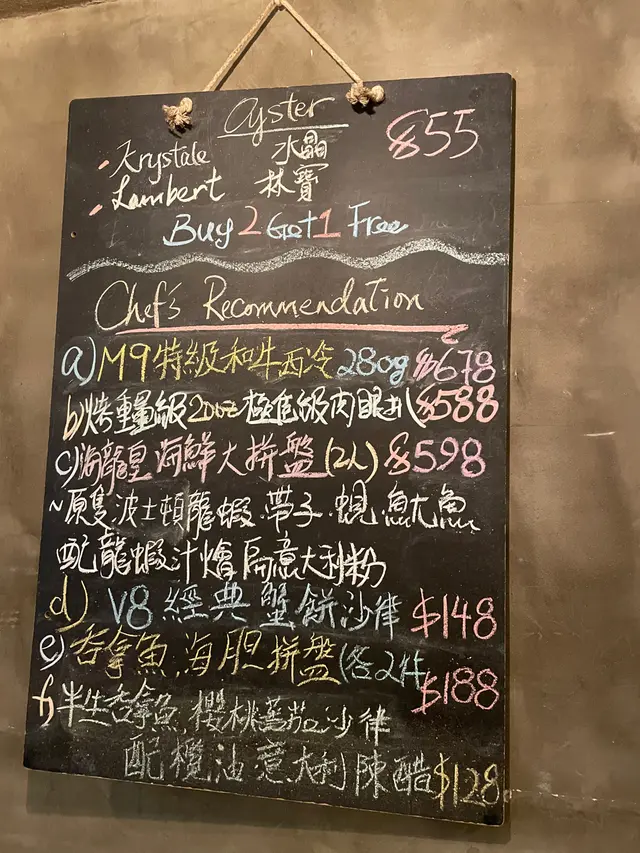 Oyster
Krystale 水晶 $55
Lambert 林寶
Buy 2 Get 1 Free
Chef's Recommendation
a) M9特級和牛西冷 280g $678
b) 烤重量級 20oz 極佳級肉眼扒 $588
c) 海龍皇海鮮大拼盤 (2人) $598
~原隻波士頓龍蝦.帶子.蜆.魷魚
配龍蝦汁燴扁意大利粉
d) V8 經典蟹餅沙律 $148
e) 吞拿魚.海胆拼盤 (各2件 $188
f) 半生吞拿魚.櫻桃蕃茄沙律
配欖油意大利陳醋 $128